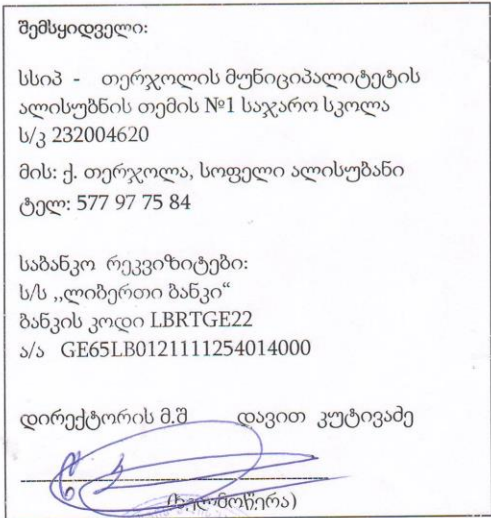 შემსყიდველი:
სსიპ - თერჯოლის მუნიციპალიტეტის
ალისუბნის თემის №1 საჯარო სკოლა
ს/კ 232004620
მის: ქ. თერჯოლა, სოფელი ალისუბანი
ტელ: 577 97 75 84
საბანკო რეკვიზიტები:
ს/ს ,,ლიბერთი ბანკი“
ბანკის კოდი LBRTGE22
ა/ა GE65LB0121111254014000
დირექტორის მ.შ დავით კუტივაძე
(ხელმოწერა)